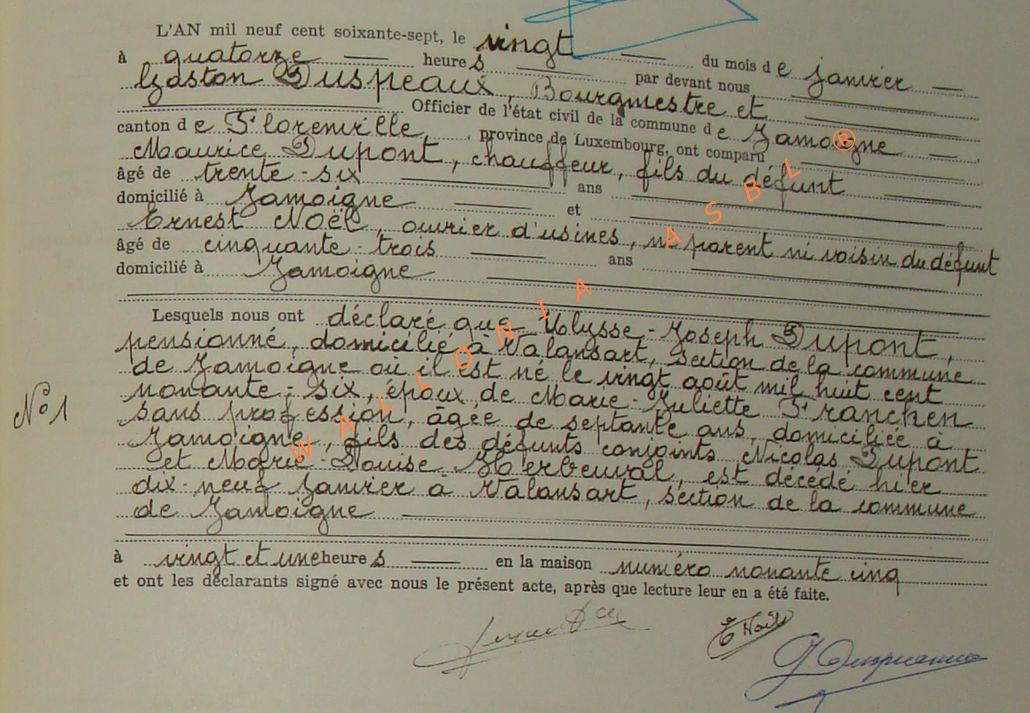 L'AN mil neuf cent soixante-sept, le vingt du mois de janvier
à quatorze heures par devant nous
Gaston Duspeaux, Bourgmestre et
Officier de l'état civil de la commune de Jamoigne
canton de Florenville, province de Luxembourg, ont comparu
Maurice Dupont, chauffeur, fils du défunt
âgé de trente-six ans
domicilié à Jamoigne et
Ernest Noël, ouvrier d'usines, ni parent ni voisin du défunt
âgé de cinquante-trois ans
domicilié à Jamoigne
Lesquels nous ont déclaré que Ulysse-Joseph Dupont,
pensionné, domicilié à Valansart, section de la commune
de Jamoigne où il est né le vingt août mil huit cent
N° 1
nonante-six, époux de Marie-Juliette Franchen
sans profession, âgée de septante ans, domiciliée à
Jamoigne, fils des défunts conjoints Nicolas Dupont
et Marie-Louise Herbeuval, est décédé hier
dix-neuf janvier à Valansart, section de la commune
de Jamoigne
à vingt et une heures en la maison numéro nonante cinq
et ont les déclarants signé avec nous le présent acte, après que lecture leur en a été faite.
E Noël
WALLONIA ASBL ®